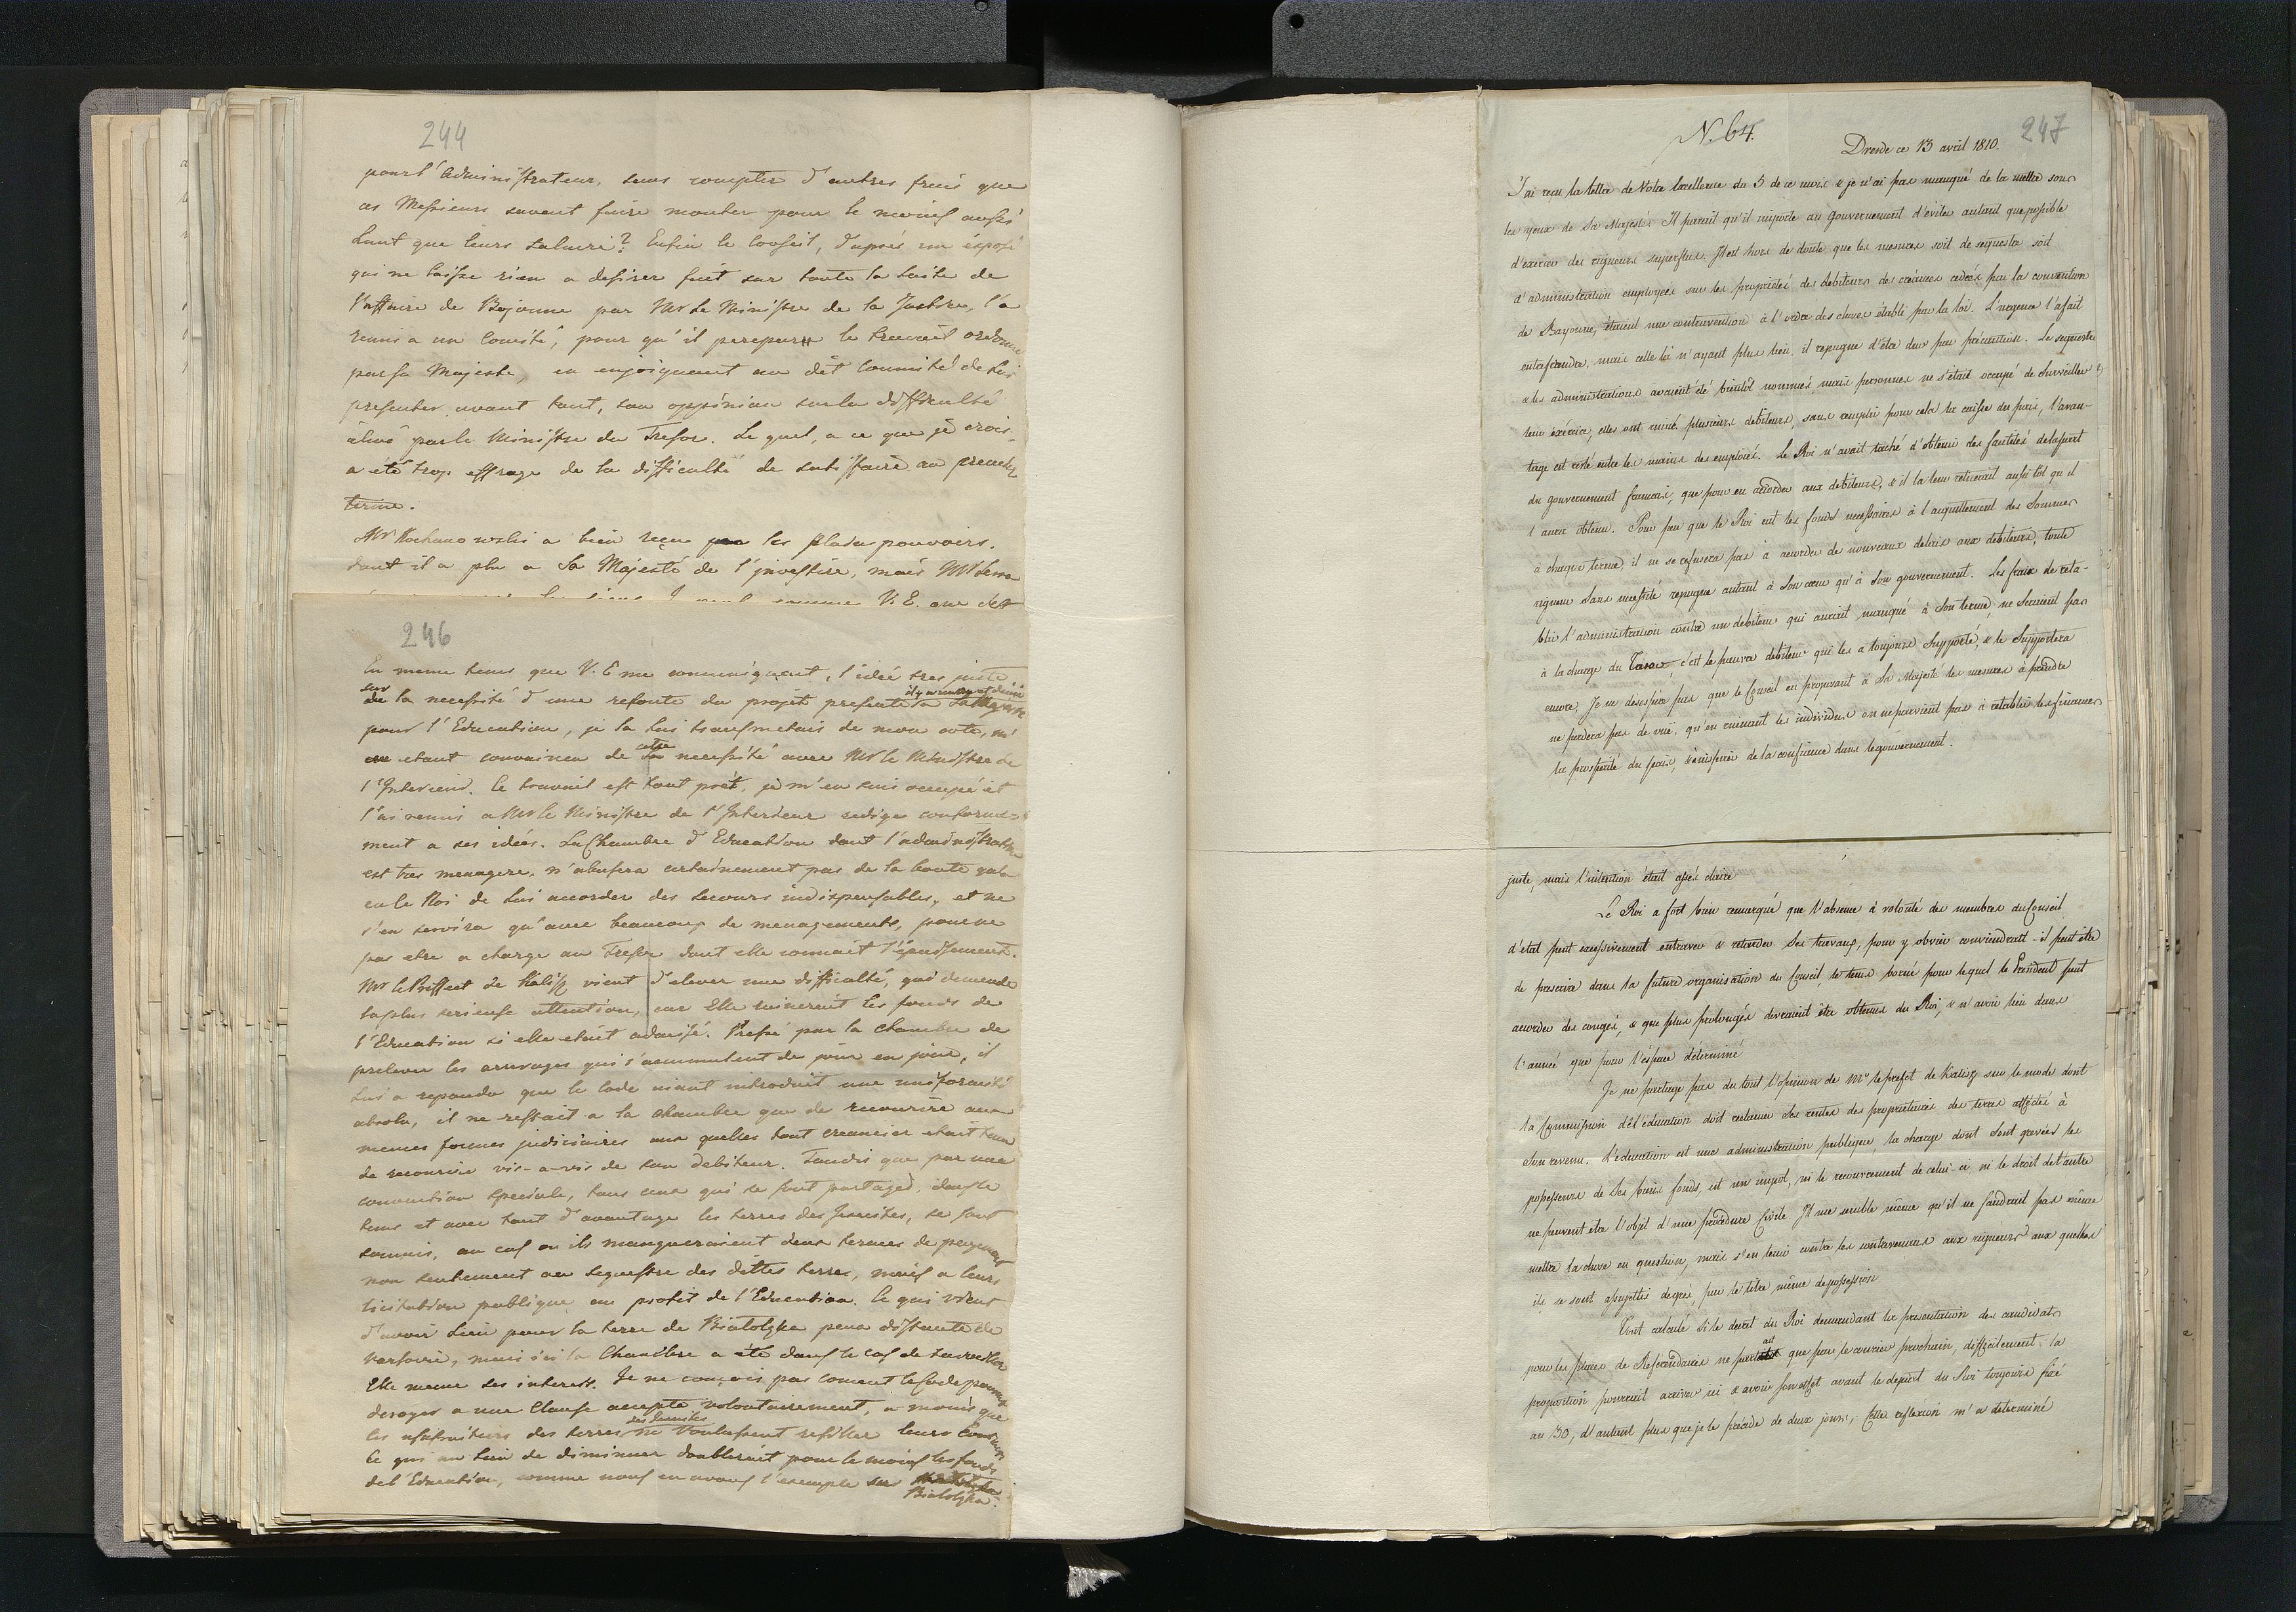 244
pour l'Administrateur, sans compter d'autres frais que
ces Messieurs savent faire monter pour le moins aussi
haut que leurs salaire? Enfin le Conseil, d'après un exposé
qui ne laisse rien a desirer fait sur toute la suite de
l'affaire de Bajonne par Mr Le Ministre de la Justice, l'a
remis a un Comité, pour qu'il prepare le travail ordonné
par sa Majesté, en enjoignant au dit Committé de lui
presenter avant tout, son oppinion sur la difficulté
élevé par le Ministre du Tresor. Le quel, a ce que je crois,
a été trop effrayé de la difficulté de satisfaire au premier
terme.
Mr Kochanowski a bien reçu les pouvoirs.
dont il a plu a Sa Majesté de l'investire, mais Mr
V. E.
246
En meme tems que V. E me communiquent, l'idée tres juste
sur la necessité d'une refonte du projet presenté a Sa Majesté
pour l'Education, je la lui transmetais de mon coté, m'
en etant convaincu de cette necessité avec Mr le Ministre de
l'Interieur. Ce travail est tout prèt, je m'en suis occupé et
l'ai remis a Mr le Ministre de l'Interieur redigé conformé-
ment a ses idées. La Chambre d'Education dont l'administration
est tres menagere, n'abusera certainement pas de la bonté qu'a
eu le Roi de lui accorder des secours indispensables, et ne
s'en servira qu'avec beaucoup de menagements, pour ne
pas etre a charge au Tresor dont elle connait l'épuisement.
Mr le Preffect de Kalisz vient d'elever une difficulté, qui demande
la plus serieuse attention, car Elle ruinerait les fonds de
l'Education si elle etait admise. Pressé par la Chambre de
prelever les arrerages qui s'accumulent de jour en jour, il
lui a repondu que le Code aiant introduit une uniformité
absolu, il ne restait a la chambre que de recourire aux
memes formes judiciaires aux quelles tout creancier etait tenu
de recourire vis-a-vis de son debiteur. Tandis que par une
convention speciale, tous ceux qui se sont partagés, dans le
tems et avec tant d'avantage les terres des Jesuites, se sont
soumis, au cas ou ils manqueroient deux termes de payement
non seulement au sequestre des dittes terres, mais a leurs
licitation publique au profit de l'Education. Ce qui vient
d'avoir lieu pour la terre de Bialolyka peux distante de
Varsovie, mais ici la Chambre a été dans le cas de surveiller
Elle meme ses interets. Je ne conçois pas coment le Code pourrait
deroger a une Clause accepté volontairement, a moins que
des Jesuites
les usufruitiers des terres ne voulussent resilier leurs Contracts
Ce qui au lieu de diminuer doublerait pour le moins les fonds
de l'Education, comme nous en avons l'exemple sur
Bialolyka.
N. 64.
247
Dresde ce 13 avril 1810.
J'ai reçu la lettre de Votre Excellence du 5 de ce mois & je n'ai pas manqué de la mettre sous
les yeux de Sa Majesté. Il parait qu'il importe au Gouvernement d'éviter autant que possible
d'exercer des rigueurs superflues. Il est hors de doute que les mesures soit de sequestre soit
d'administration employées sur les propriétés des debiteurs des créances cedées par la convention
de Bayonne, étaient une contravention à l'ordre des choses établi par la loi. L'urgence l'a fait
enfreindre, mais celle là n'ayant plus lieu, il repugne d'être dur par précaution. Le sequestre
& les administrations avaient été bientôt nommés, mais personne ne s'était occupé de surveiller
leur exercice, elles ont ruiné plusieurs debiteurs, sans remplir pour cela la caisse du païs, l'avan-
tage est resté entre les mains des employés. Le Roi n'avait taché d'obtenir des facilités de la part
du gouvernement français, que pour en accorder aux debiteurs, & il la leur retirerait aussitôt qu'il
l'aura obtenu. Pour peu que le Roi eut les fonds necessaires à l'acquittement des Sommes
à chaque terme, il ne se refusera pas à accorder de nouveaux delais aux debiteurs, toute
rigueur sans necessité repugne autant à Son coeur qu'à Son gouvernement. Les fraix de réta-
blir l'administration contre un debiteur qui aurait manqué à Son terme, ne seraient pas
à la charge du Trésor, c'est le pauvre debiteur qui les a toujours Supporté, & le Supportera
encore. Je ne désespère pas que le Conseil en proposant à Sa Majesté les mesures à prendre
ne perdra pas de vüe, qu'en ruinant les individus on ne parvient pas à rétablir les finances
la prosperité du païs, & à inspirer de la confiance dans le gouvernement.
juste, mais l'intention était assés claire
Le Roi a fort bien remarqué que l'absence à volonté des membres du Conseil
d'etat peut excessivement entraver & retarder Ses travaux, pour y obvier conviendrait-il peut être
de prescrire dans la future organisation du Conseil, le tems borné pour lequel le President peut
accorder des congés, & que plus prolongés devraient être obtenus du Roi, & n'avoir lieu dans
l'année que pour l'espace déterminé
Je ne partage pas du tout l'opinion de Mr le prefet de Kalisz sur le mode dont
la Commission de l'éducation doit reclamer les rentes des proprietaires des terres affectées à
Son revenu. L'education est une administration publique, la charge dont sont grevées les
possesseurs de Ses biens fonds, est un impot, ni le recouvrement de celui-ci, ni le droit de l'autre
ne peuvent être l'objet d'une procedure Civile. Il me semble même qu'il ne faudrait pas même
mettre la chose en question, mais s'en tenir contre les contrevenans aux rigueurs aux quelles
ils se sont assujettis de gré, par le titre même de possession
Tout calculé si le decret du Roi demandant la presentation des candidats
pour les places de Referendaires ne part que par le courier prochain, difficilement la
proposition pourrait arriver ici & avoir son effet avant le depart du Roi toujours fixé
au 30, d'autant plus que je le précède de deux jours; Cette reflexion m'a determiné